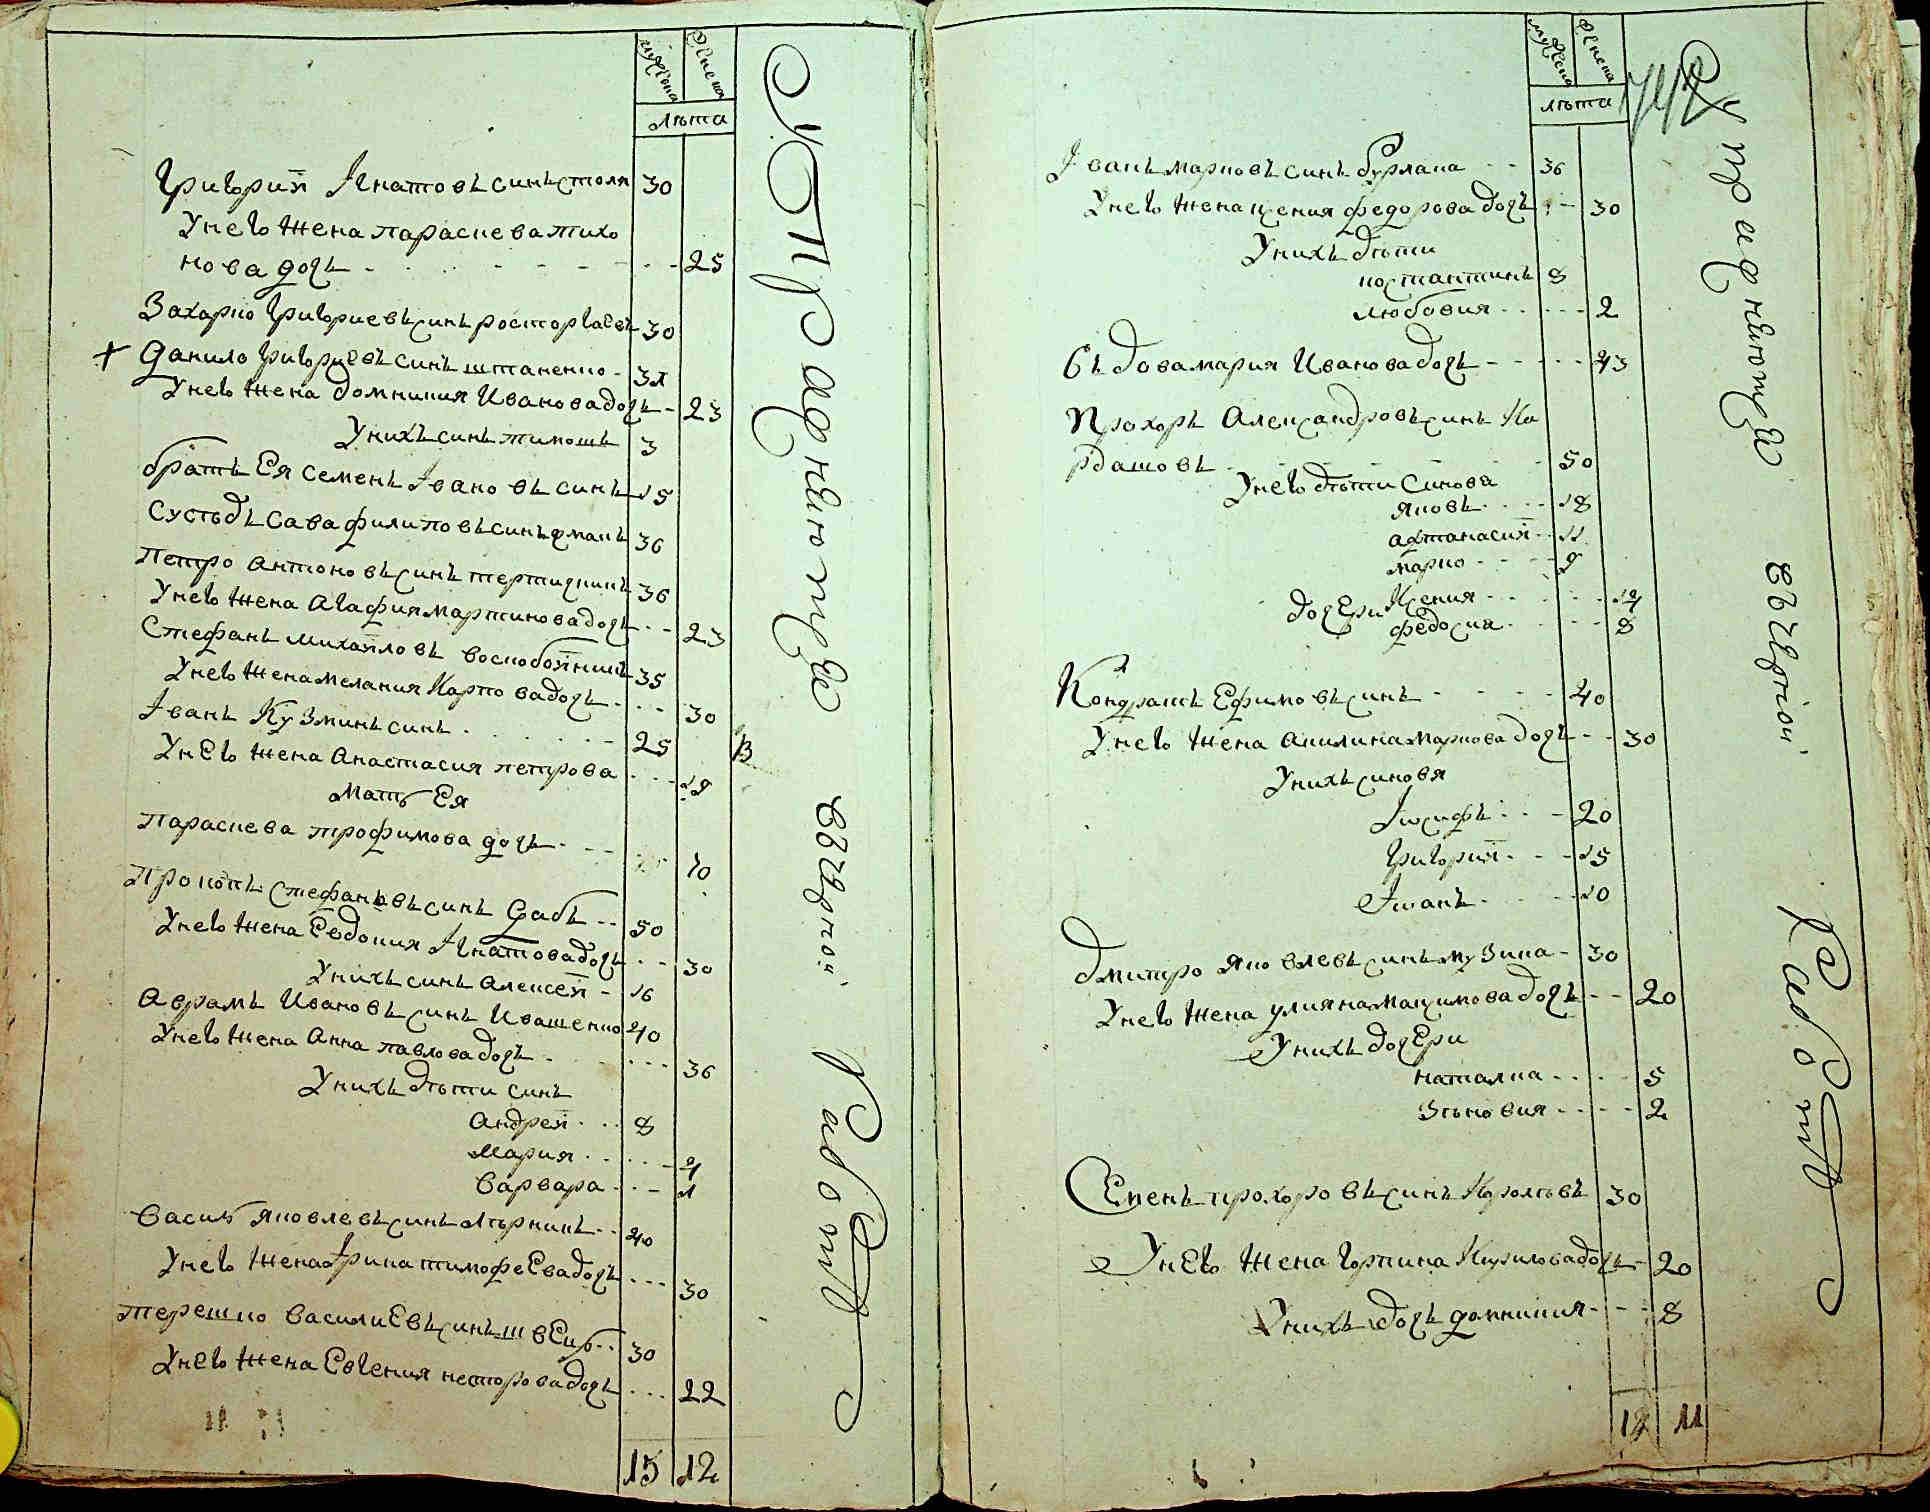 мужеска
женска
лѣта
Григорий Игнатовъ синъ столя 30
У него жена параскева тихо
нова дочь - - - - 25
Захарко Григориевъ синъ росторгаевъ 30
+ Данило Григориевъ синъ штаненко - 31
У него жена домникия Иванова дочь - 23
У нихъ синъ тимошъ 3
братъ Ея семенъ Iвановъ синъ 15
Сусѣдъ Сава филиповъ синъ 36
Петро антоновъ синъ 36
У него жена Агафия мартинова дочь - - 23
Стефанъ михайловъ воскобойникъ 35
У него жена мелания Карпова дочь - - - 30
Iванъ Кузминъ синъ - - - - 25
У него жена Анастасия петрова - - - 19
мать Ея
параскева трофимова дочь - - - 70
Прокопъ Стефановъ синъ - - 50
У него жена Евдокия Игнатова дочь - - 30
У нихъ синъ Алексей - 16
Аврамъ Ивановъ синъ Иващенко 40
У него жена Анна павлова дочь - - - 36
У нихъ дѣти синъ
Андрей - - 8
Мария - - - 4
Варвара - - - 1
Василь яковлевъ синъ - - 40
У него жена Iрина тимофеЕва дочь - - - 30
терешко ВасилиЕвъ синъ швЕць - - 30
У него жена Евгения несторова дочь - - - 22
15 12
У Паднюпра
Вечерной
Работѣ
мужеска
женска
лѣта
Iванъ марковъ синъ бурлака - - 36
У него жена ксения федорова дочь - - 30
У нихъ дѣти
костантинъ 8
любовия - - - - 2
Въдова мария Иванова дочь - - - - 43
Прохоръ Александровъ синъ Ка
рдашовъ - - - - 50
У него дѣти синовя
яковъ - - - 18
афтанасий - - 11
марко - - - 9
дочЕри Ксения - - - - 14
федосия - - - - 8
Кондратъ Ефимовъ синъ - - - - 40
У него жена Акилина маркова дочь - - 30
У нихъ синовя
Iосифъ - - - 20
Григорий - - - 15
Iоанъ - - - 10
Дмитро яковлевъ синъ музика - 30
У него жена улияна максимова дочь - - 20
У нихъ дочЕри
наталка - - - 5
Зѣновия - - - - 2
СЕменъ прохоровъ синъ Королювъ 30
У него жена горпина Кирилова дочь - 20
У нихъ дочь домникия - - - 8
11
Вечерной
Работѣ